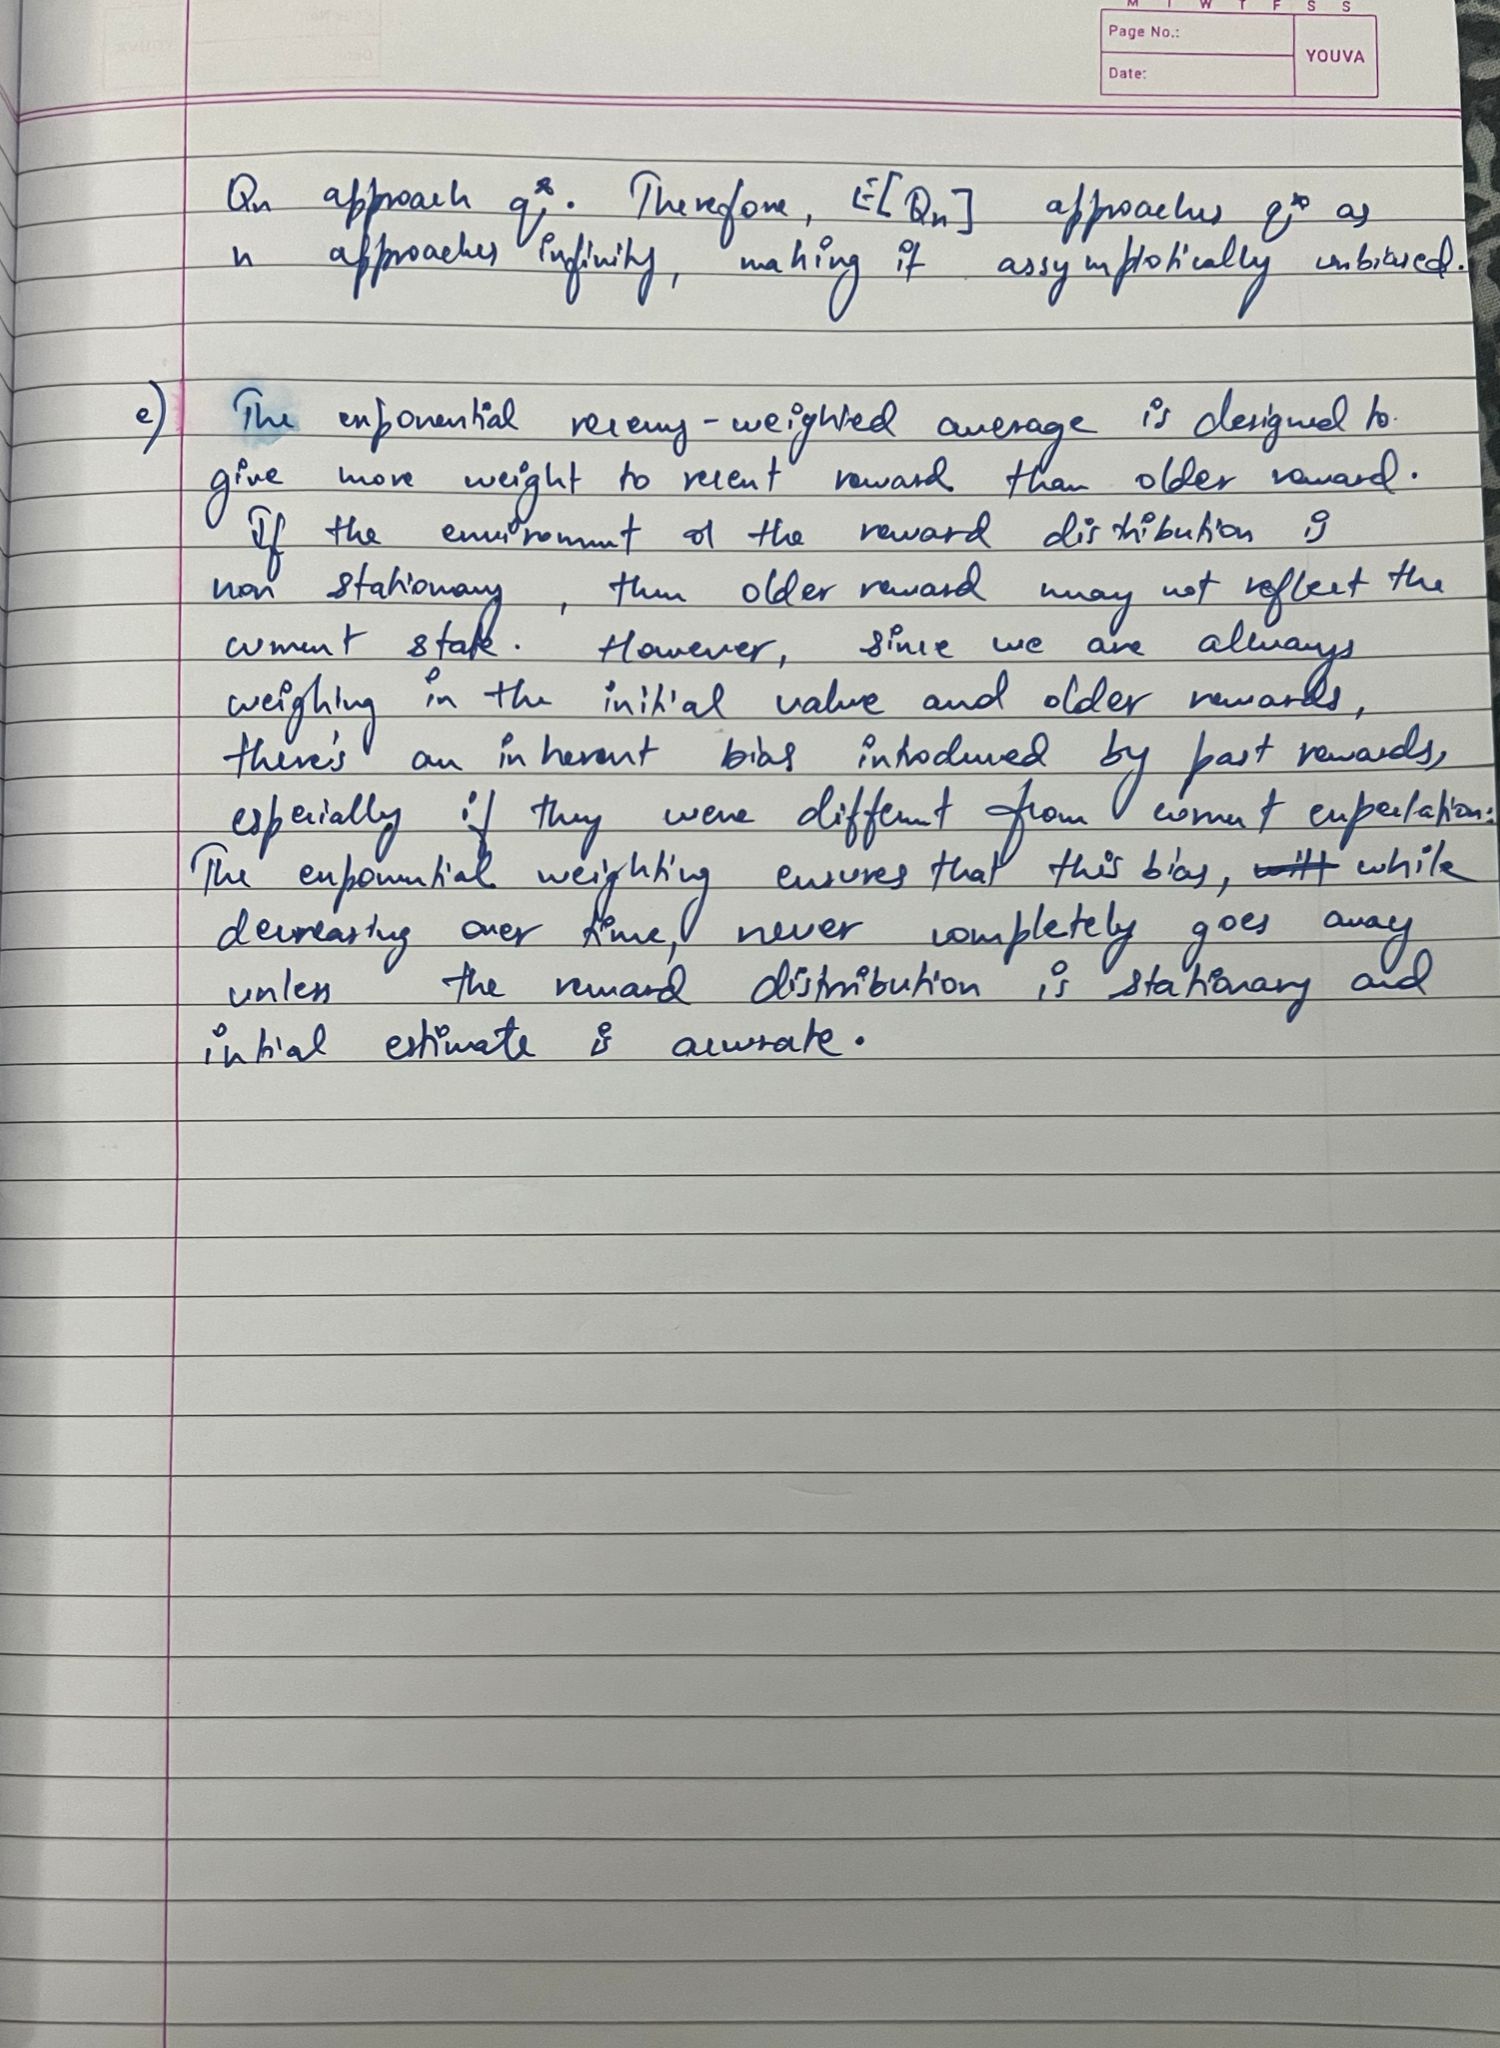 M T W T F S S
Page No.:
YOUVA
Date:
Qn approach q*. Therefore, E[Qn] approaches q* as
n approaches infinity, making it assymptotically unbiased.
e) The exponential recency-weighted average is designed to
give more weight to recent reward than older reward.
If the environment or the reward distribution is
non stationary, then older reward may not reflect the
current state. However, since we are always
weighing in the initial value and older rewards,
there's an inherent bias introduced by past rewards,
especially if they were different from current expectation.
The exponential weighting ensures that this bias, will while
decreasing over time, never completely goes away
unless the reward distribution is stationary and
initial estimate is accurate.